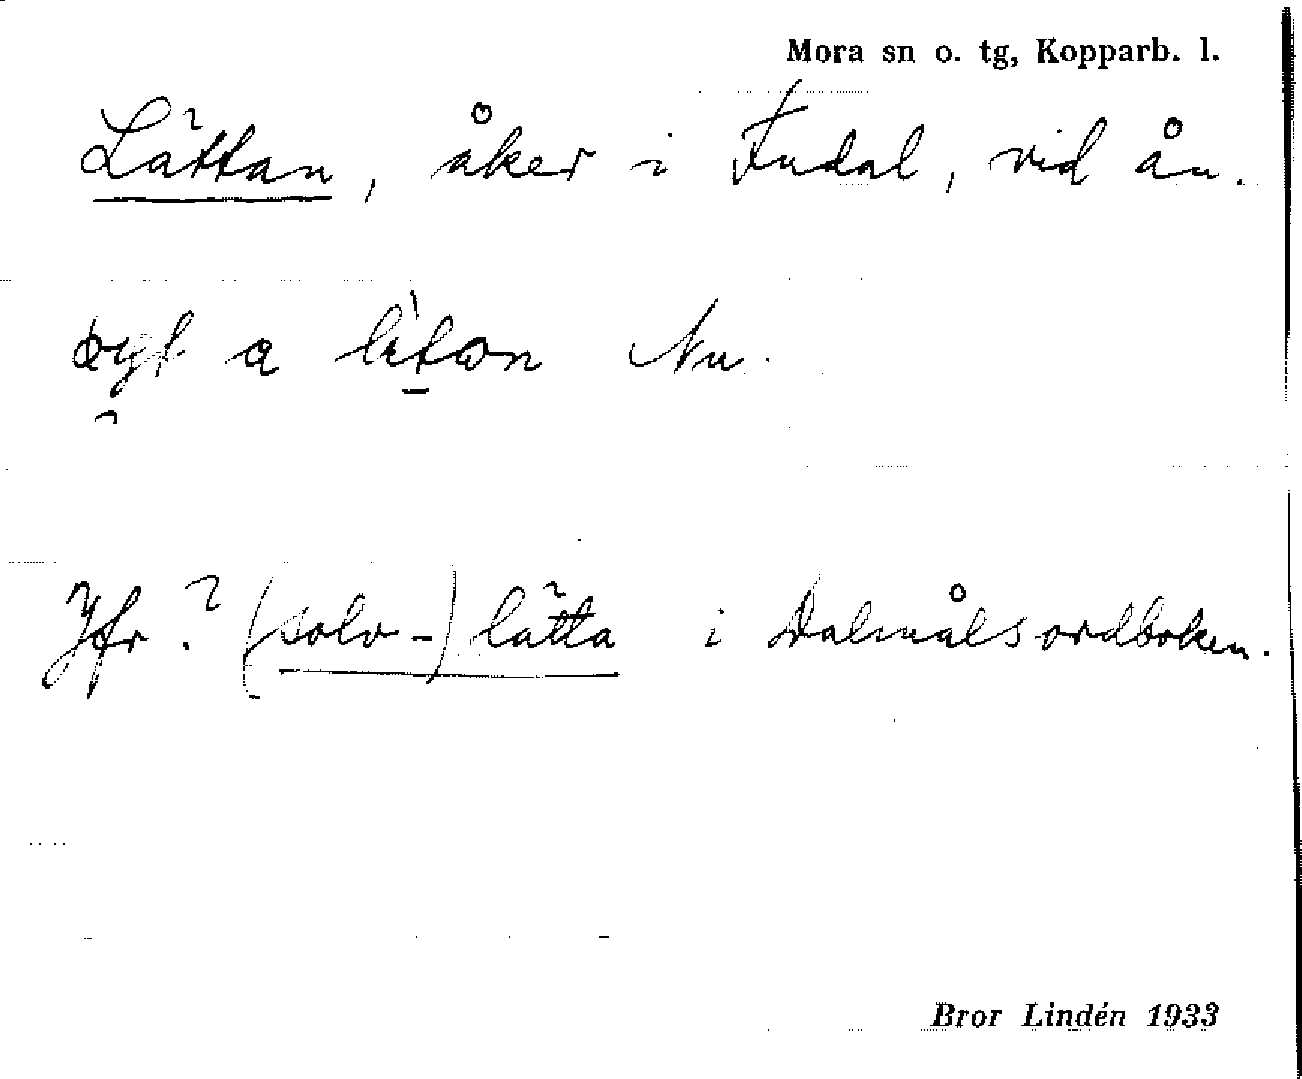 Mora sn o. tg, Kopparb. l.
Lättan, åker i Fudal, vid ån.
a Nu.
Jfr ? (solv-) lätta i Dalmålsordboken.
Bror Lindén 1933